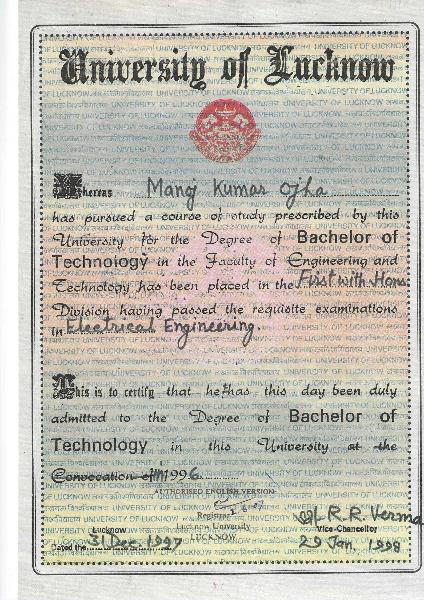 University of Lucknow
Whereas Manoj Kumar Ojha
has pursued a course of study prescribed by this
University for the Degree of Bachelor of
Technology in the Faculty of Engineering and
Technology has been placed in the First with Hons.
Division having passed the requisite examinations
in Electrical Engineering.
This is to certify that he has this day been duly
admitted to the Degree of Bachelor of
Technology in this University at the
Convocation of 1996
AUTHORISED ENGLISH VERSION
Registrar
Lucknow University
LUCKNOW
Lucknow
Dated the 31 Dec. 1997
R. R. Verma
Vice-Chancellor
29 Jan, 1998